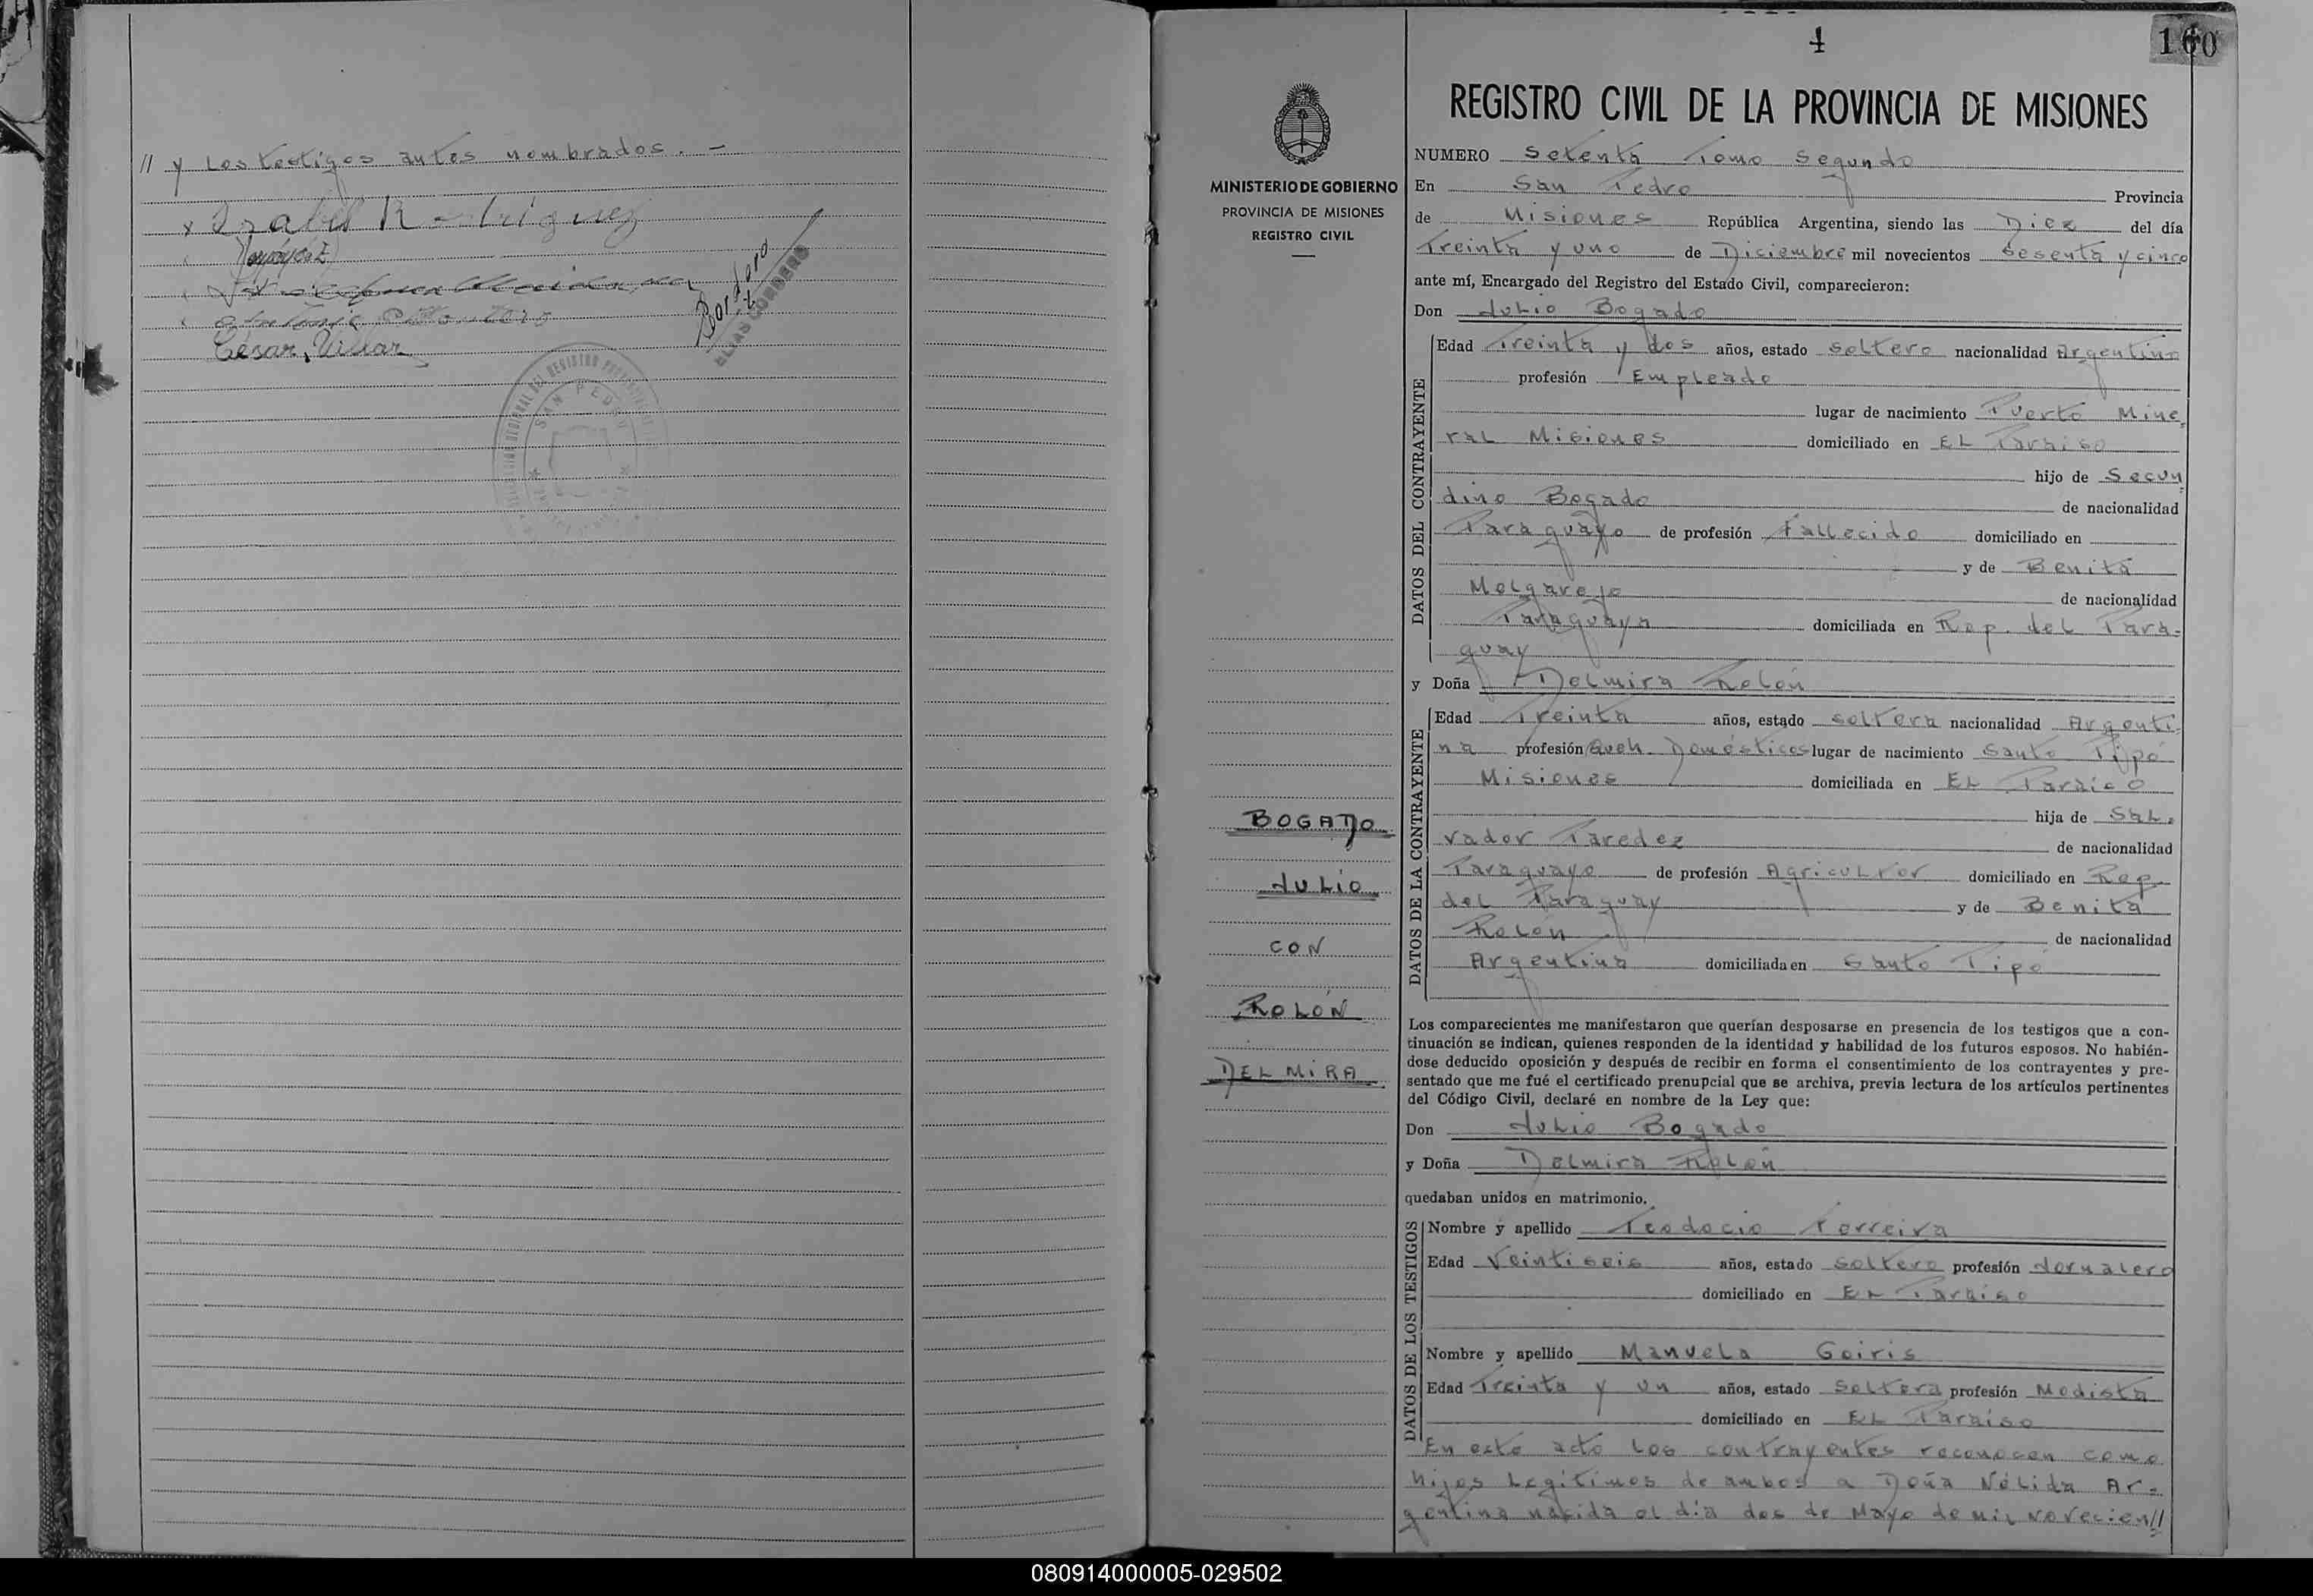 // y Los testigos antes nombrados. -
x Izabel Rodriguez
César, Villar
ELIAS CORDERO
SAN PEDRO
4
160
REGISTRO CIVIL DE LA PROVINCIA DE MISIONES
MINISTERIO DE GOBIERNO
PROVINCIA DE MISIONES
REGISTRO CIVIL
NUMERO Setenta Tomo Segundo
En San Pedro Provincia
de Misiones República Argentina, siendo las Diez del día
Treinta y uno de Diciembre mil novecientos sesenta y cinco
ante mí, Encargado del Registro del Estado Civil, comparecieron:
Don Julio Bogado
DATOS DEL CONTRAYENTE
Edad Treinta y dos años, estado soltero nacionalidad Argentino
profesión Empleado
lugar de nacimiento Puerto Mine
ral Misiones domiciliado en El Paraiso
hijo de Secun
dino Bogado de nacionalidad
Paraguayo de profesión Fallecido domiciliado en
y de Benita
Melgarejo de nacionalidad
Paraguaya domiciliada en Rep. del Para=
guay
y Doña Delmira Rolón
DATOS DE LA CONTRAYENTE
Edad Treinta años, estado soltera nacionalidad Argenti
na profesión Queh. Domésticos lugar de nacimiento Santo Pipó
Misiones domiciliada en El Paraiso
hija de Sal=
vador Paredez de nacionalidad
Paraguayo de profesión Agricultor domiciliado en Rep
del Paraguay y de Benita
Rolón de nacionalidad
Argentina domiciliada en Santo Pipó
BOGADO
JULIO
CON
ROLÓN
DELMIRA
Los comparecientes me manifestaron que querían desposarse en presencia de los testigos que a con-
tinuación se indican, quienes responden de la identidad y habilidad de los futuros esposos. No habién-
dose deducido oposición y después de recibir en forma el consentimiento de los contrayentes y pre-
sentado que me fué el certificado prenupcial que se archiva, previa lectura de los artículos pertinentes
del Código Civil, declaré en nombre de la Ley que:
Don Julio Bogado
y Doña Delmira Rolón
quedaban unidos en matrimonio.
DATOS DE LOS TESTIGOS
Nombre y apellido Teodocio Ferreira
Edad Veintiseis años, estado soltero profesión Jornalero
domiciliado en El Paraiso
Nombre y apellido Manuela Goiris
Edad Treinta y un años, estado soltera profesión Modista
domiciliado en El Paraiso
En este acto los contrayentes reconocen como
hijos Legítimos de ambos a Doña Nélida Ar=
gentina nacida el día dos de Mayo de mil novecien//
080914000005-029502